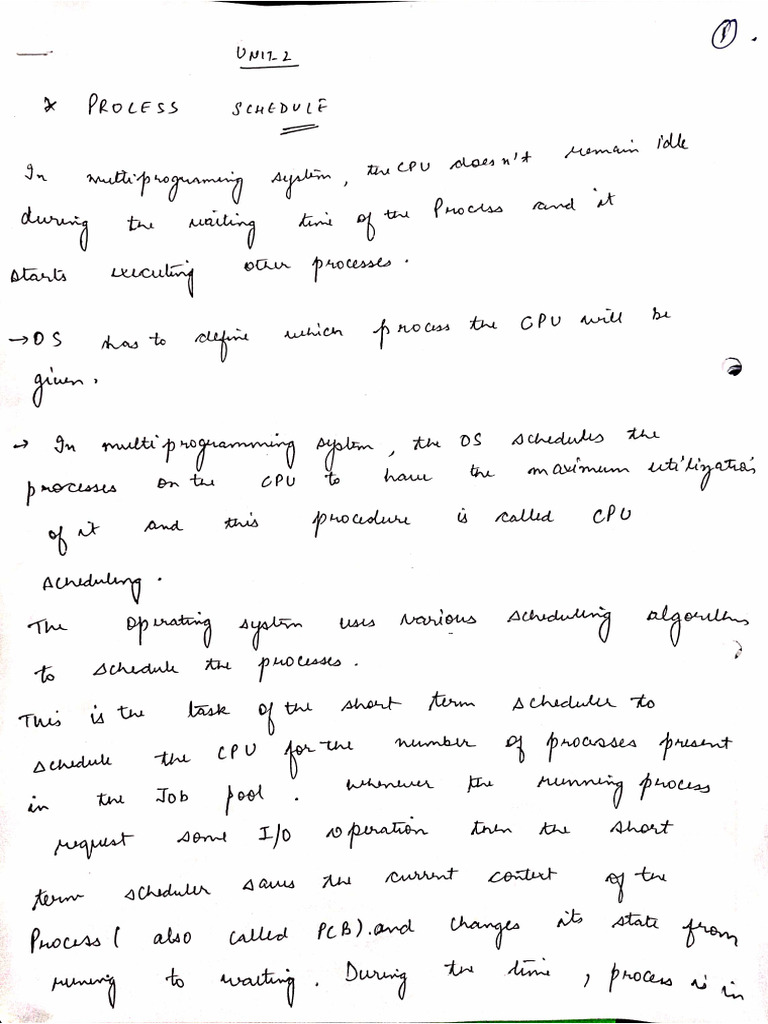 1.
UNIT-2
* PROCESS SCHEDULE
In multiprograming system, the CPU doesn't remain idle
during the waiting time of the Process and it
starts executing other processes.
→ OS has to define which process the CPU will be
given.
→ In multiprogramming system, the OS schedules the
processes on the CPU to have the maximum utilization
of it and this procedure is called CPU
scheduling.
The operating system uses various scheduling algorithms
to schedule the processes.
This is the task of the short term scheduler to
schedule the CPU for the number of processes present
in the Job pool. Whenever the running process
request some I/O operation then the short
term scheduler saves the current context of the
Process ( also called PCB). and changes its state from
running to waiting. During the time, process is in